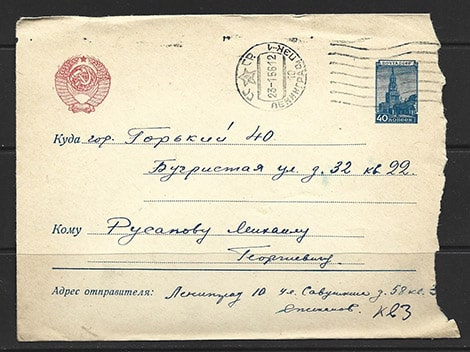 СССР
ЛЕНИНГРАД 10
23-1 56 12
ПОЧТА СССР
40 КОПЕЕК
Куда гор. Горький 40
Бугристая ул. д. 32 кв 22.
Кому Русанову Михаилу
Георгиевичу
Адрес отправителя: Ленинград 10 ул. Савушкина д. 58 кв. 3
кв 3